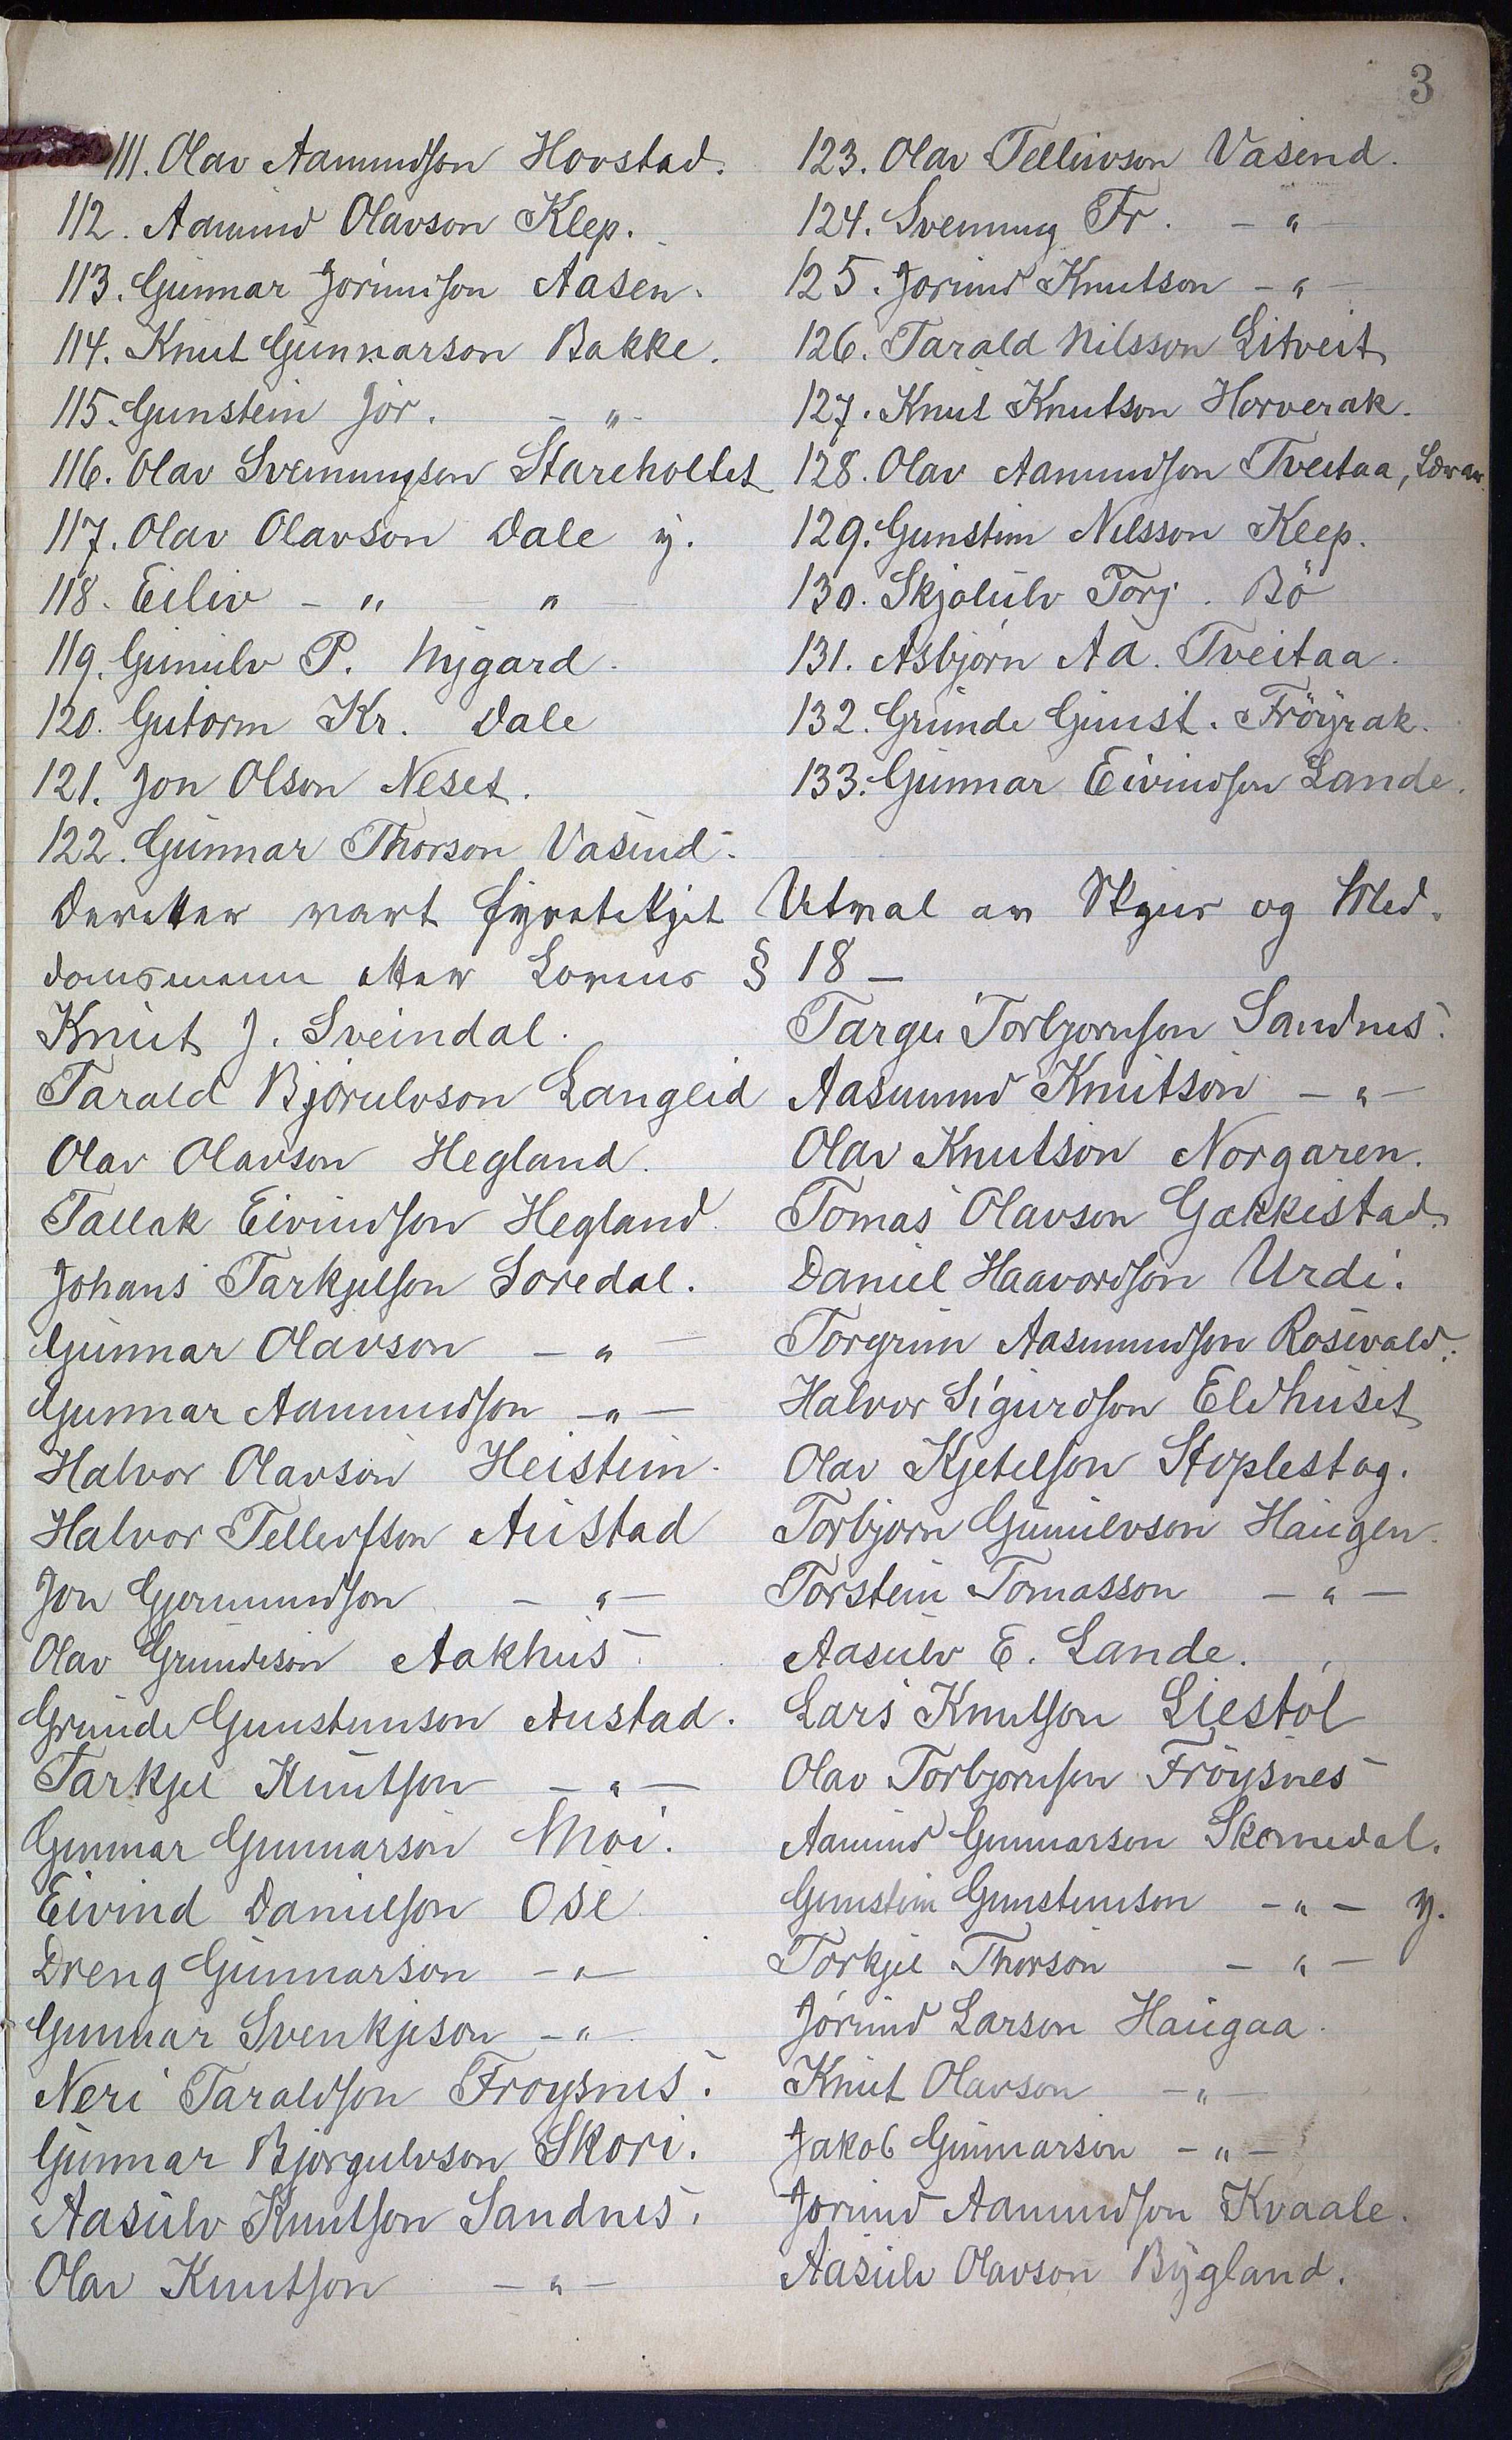 3
111. Olav Aamundson Hovstad.
112. Aamund Olavson Klep.
113. Gunnar Jorundson Aasen.
114. Knut Gunnarson Bakke.
115. Gunstein Jör. - " -
116. Olav Svenungson Stareholtet
117. Olav Olavson Dale y.
118. Eiliv - " - " -
119. Gunulv P. Nygard.
120. Gutorm Kr. Dale
121. Jon Olson Neset.
122. Gunnar Thorson Vasend.
123. Olav Tellevson Vasend.
124. Svenung Fr. - " -
125. Jorund Knutson - " -
126. Tarald Nilsson Litveit
127. Knut Knutson Horverak.
128. Olav Aamundson Tveitaa,
129. Gunstein Nilsson Klep.
130. Skjolulv Torj. Bö
131. Asbjørn Aa. Tveitaa.
132. Grunde Gunst. Fröyrak.
133. Gunnar Eivindson Lande.
Deretter vart fyretekjet Utval av Skjøns og Med-
domsmenn etter Lovens § 18 -
Knut J. Sveindal.
Tarald Bjørulvson Langeid
Olav Olavson Hegland.
Tallak Eivindson Hegland.
Johans Tarkjelson Loredal.
Gunnar Olavson - " -
Gunnar Aamundson - " -
Halvor Olavson Heistein.
Halvor Tellefsson Austad
Jon Gjermundson - " -
Olav Grundeson Aakhus.
Grunde Gunsteinson Austad.
Tarkjel Knutson - " -
Gunnar Gunnarson Moi.
Eivind Danielson Ose
Dreng Gunnarson - " -
Gunnar Svenkjeson - " -
Neri Taraldson Froysnes.
Gunnar Bjørgulvson Skori.
Aasulv Knutson Sandnes.
Olav Knutson - " -
Targei Torbjornson Sandnes.
Aasmund Knutson - " -
Olav Knutson Norgaren.
Tomas Olavson Gakkestad.
Daniel Haavordson Urdi.
Torgrim Aasmundson Rosevald.
Halvor Sigurdson Eldhuset
Olav Kjetelson Stoplestog.
Torbjorn Gunulvson Haugen.
Torstein Tomasson - " -
Aasulv E. Lande.
Lars Knutson Liestöl
Olav Torbjornson Fröysnes
Aamund Gunnarson Skomedal.
Gunstein Gunsteinson - " - y.
Torkjel Thorson - " -
Jorund Larson Haugaa.
Knut Olavson - " -
Jakob Gunnarson - " -
Jorund Aamundson Kvaale.
Aasulv Olavson Bygland.